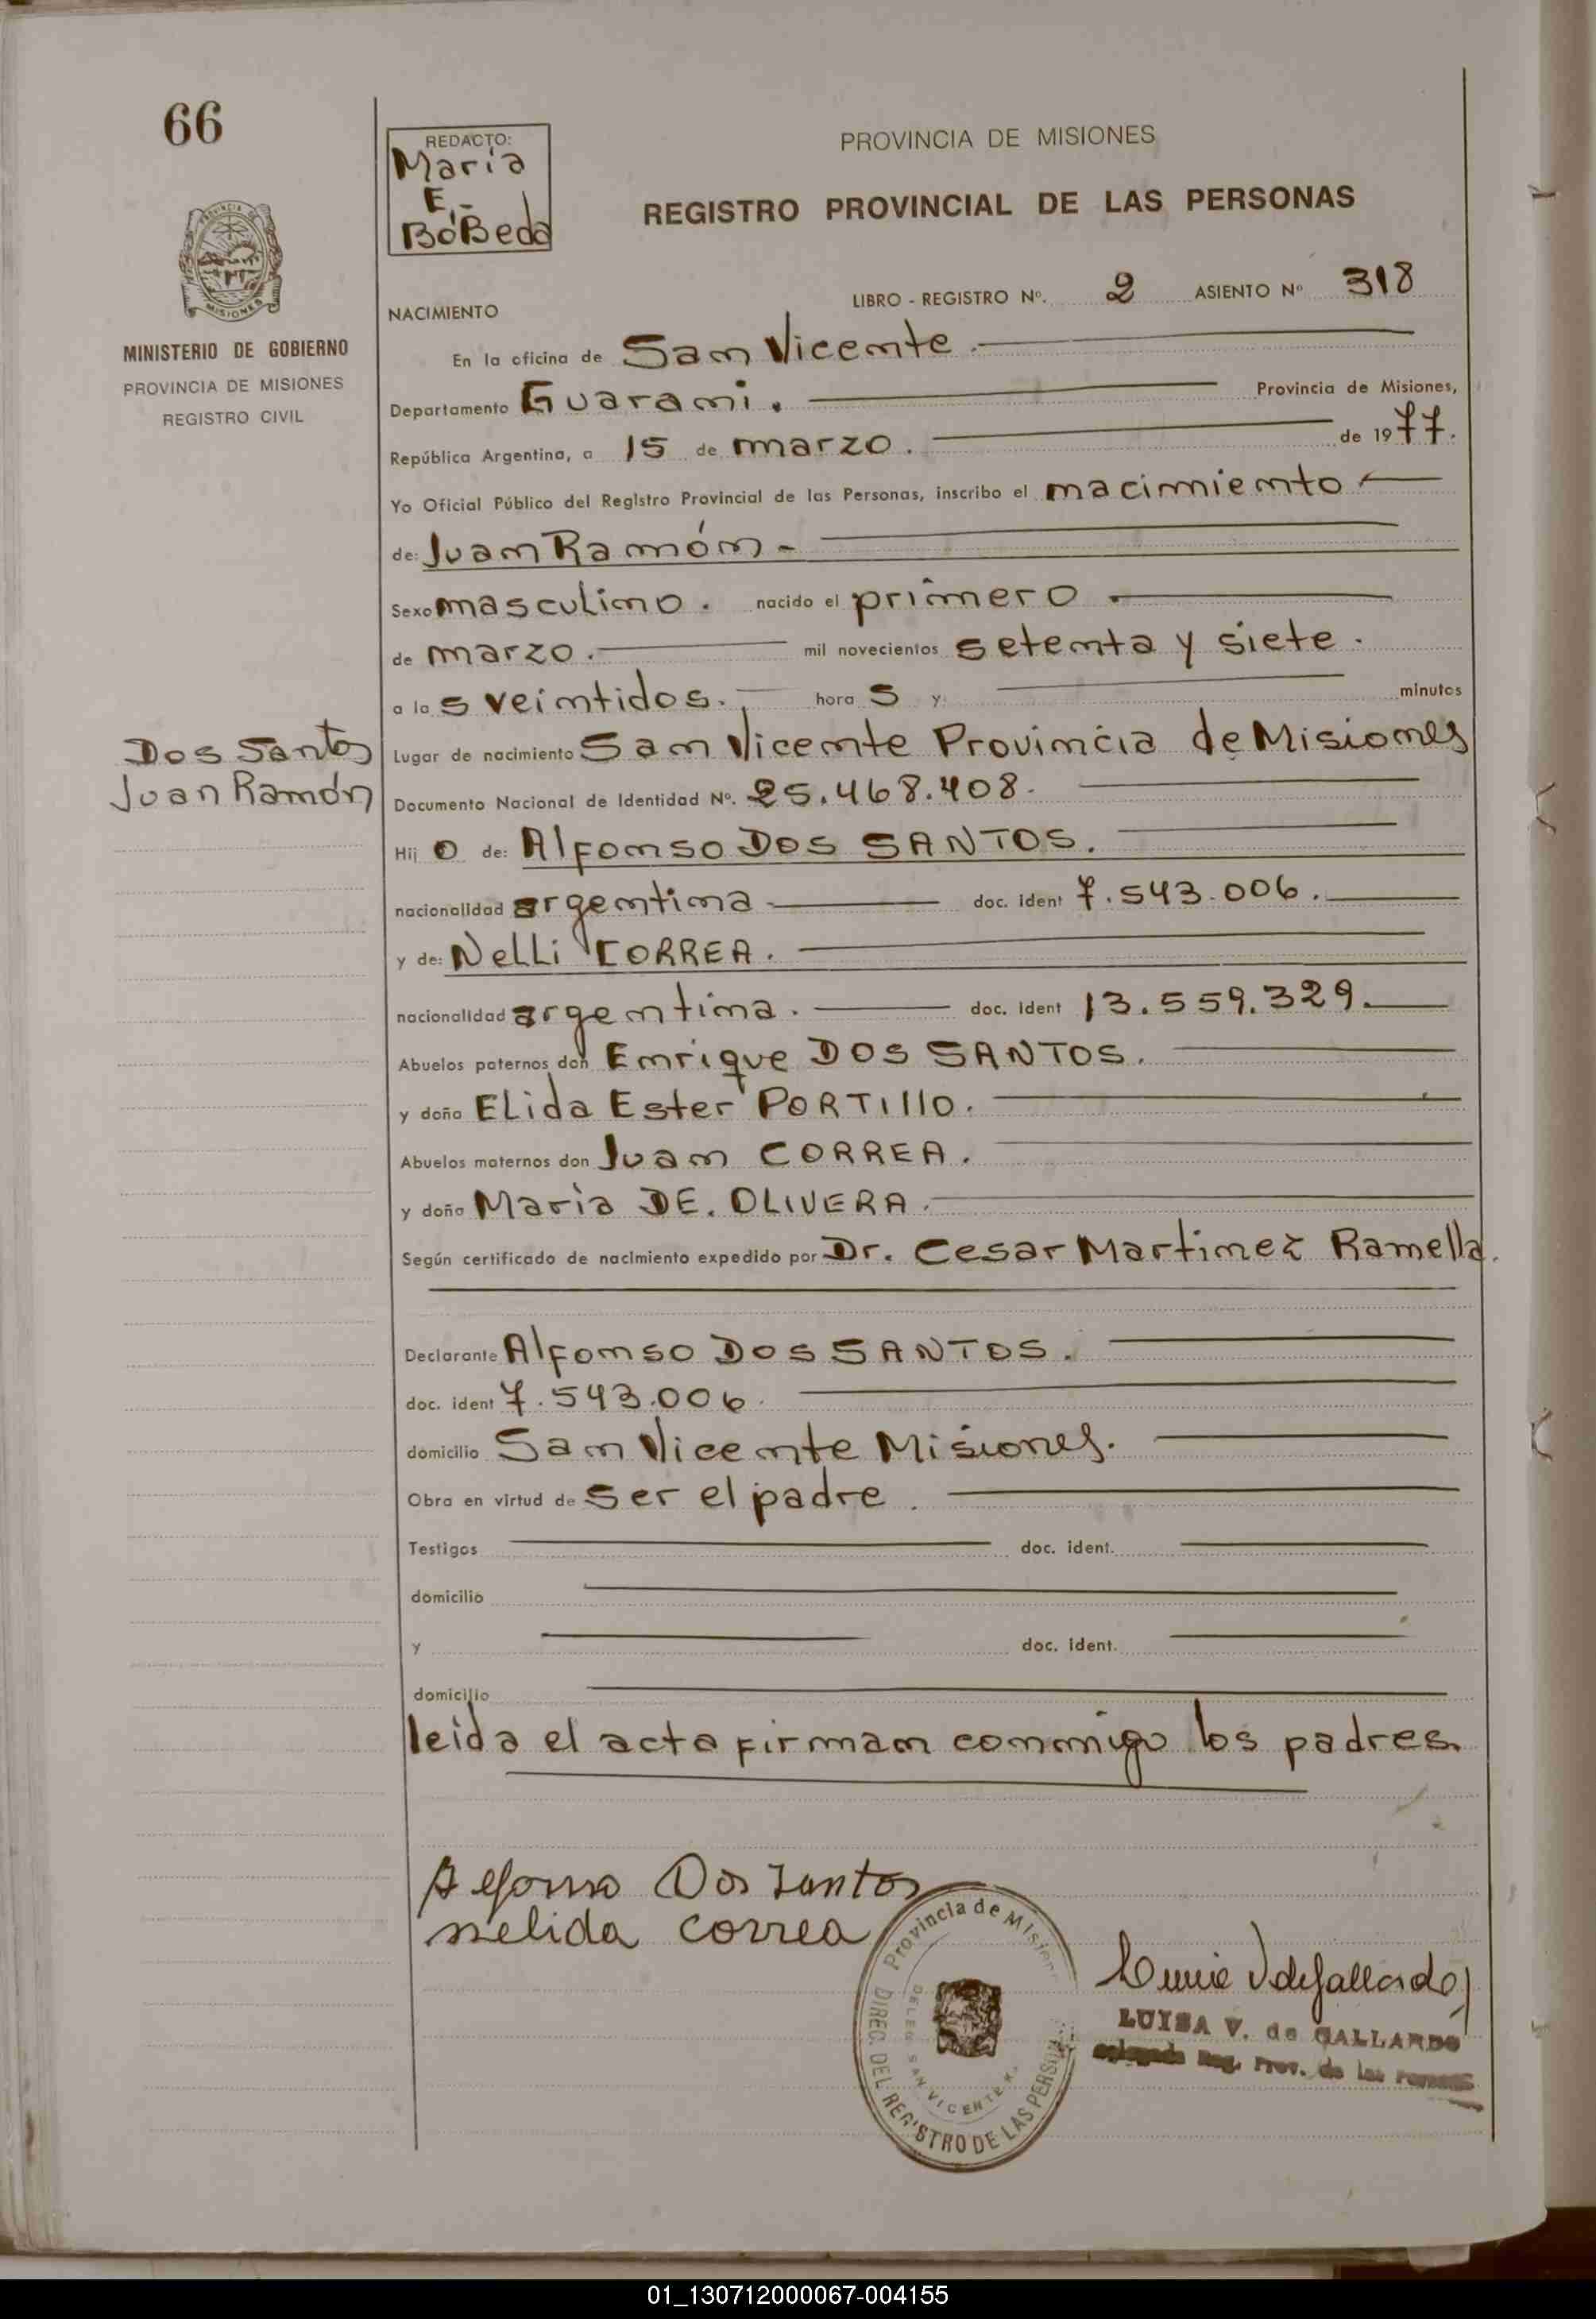 66
REDACTO:
María
E.-
BóBeda
PROVINCIA DE MISIONES
REGISTRO PROVINCIAL DE LAS PERSONAS
MINISTERIO DE GOBIERNO
PROVINCIA DE MISIONES
REGISTRO CIVIL
LIBRO - REGISTRO Nº. 2 ASIENTO Nº 318
NACIMIENTO
En la oficina de San Vicente.
Departamento Guarani. Provincia de Misiones,
República Argentina, a 15 de marzo. de 1977.
Yo Oficial Público del Registro Provincial de las Personas, inscribo el nacimiento
de: Juan Ramón-
Sexo masculino. nacido el primero.
de marzo. mil novecientos setenta y siete.
a la s veintidos. hora s y minutos
Lugar de nacimiento San Vicente Provincia de Misiones
Dos Santos
Juan Ramón
Documento Nacional de Identidad Nº. 25.468.408.
Hij o de: Alfonso DOS SANTOS.
nacionalidad argentina doc. ident 7.543.006.
y de: Nelli CORREA.
nacionalidad argentina. doc. ident 13.559.329.
Abuelos paternos don Enrique DOS SANTOS.
y doña Elida Ester PORTIllO.
Abuelos maternos don Juan CORREA.
y doña María DE. OLIVERA.
Según certificado de nacimiento expedido por Dr. Cesar Martinez Ramella.
Declarante Alfonso DOS SANTOS.
doc. ident 7.543.006.
domicilio San Vicente Misiones.
Obra en virtud de ser el padre.
Testigos doc. ident.
domicilio
y doc. ident.
domicilio
leida el acta firman conmigo los padres.
Alfonso Dos Santos
nelida correa
Provincia de Misiones
DIREC. DEL REGISTRO DE LAS PERSON
DELEG. SAN VICENTE
V de Gallardo
LUISA V. de GALLARDO
Delegada Reg. Prov. de las Personas
01_130712000067-004155